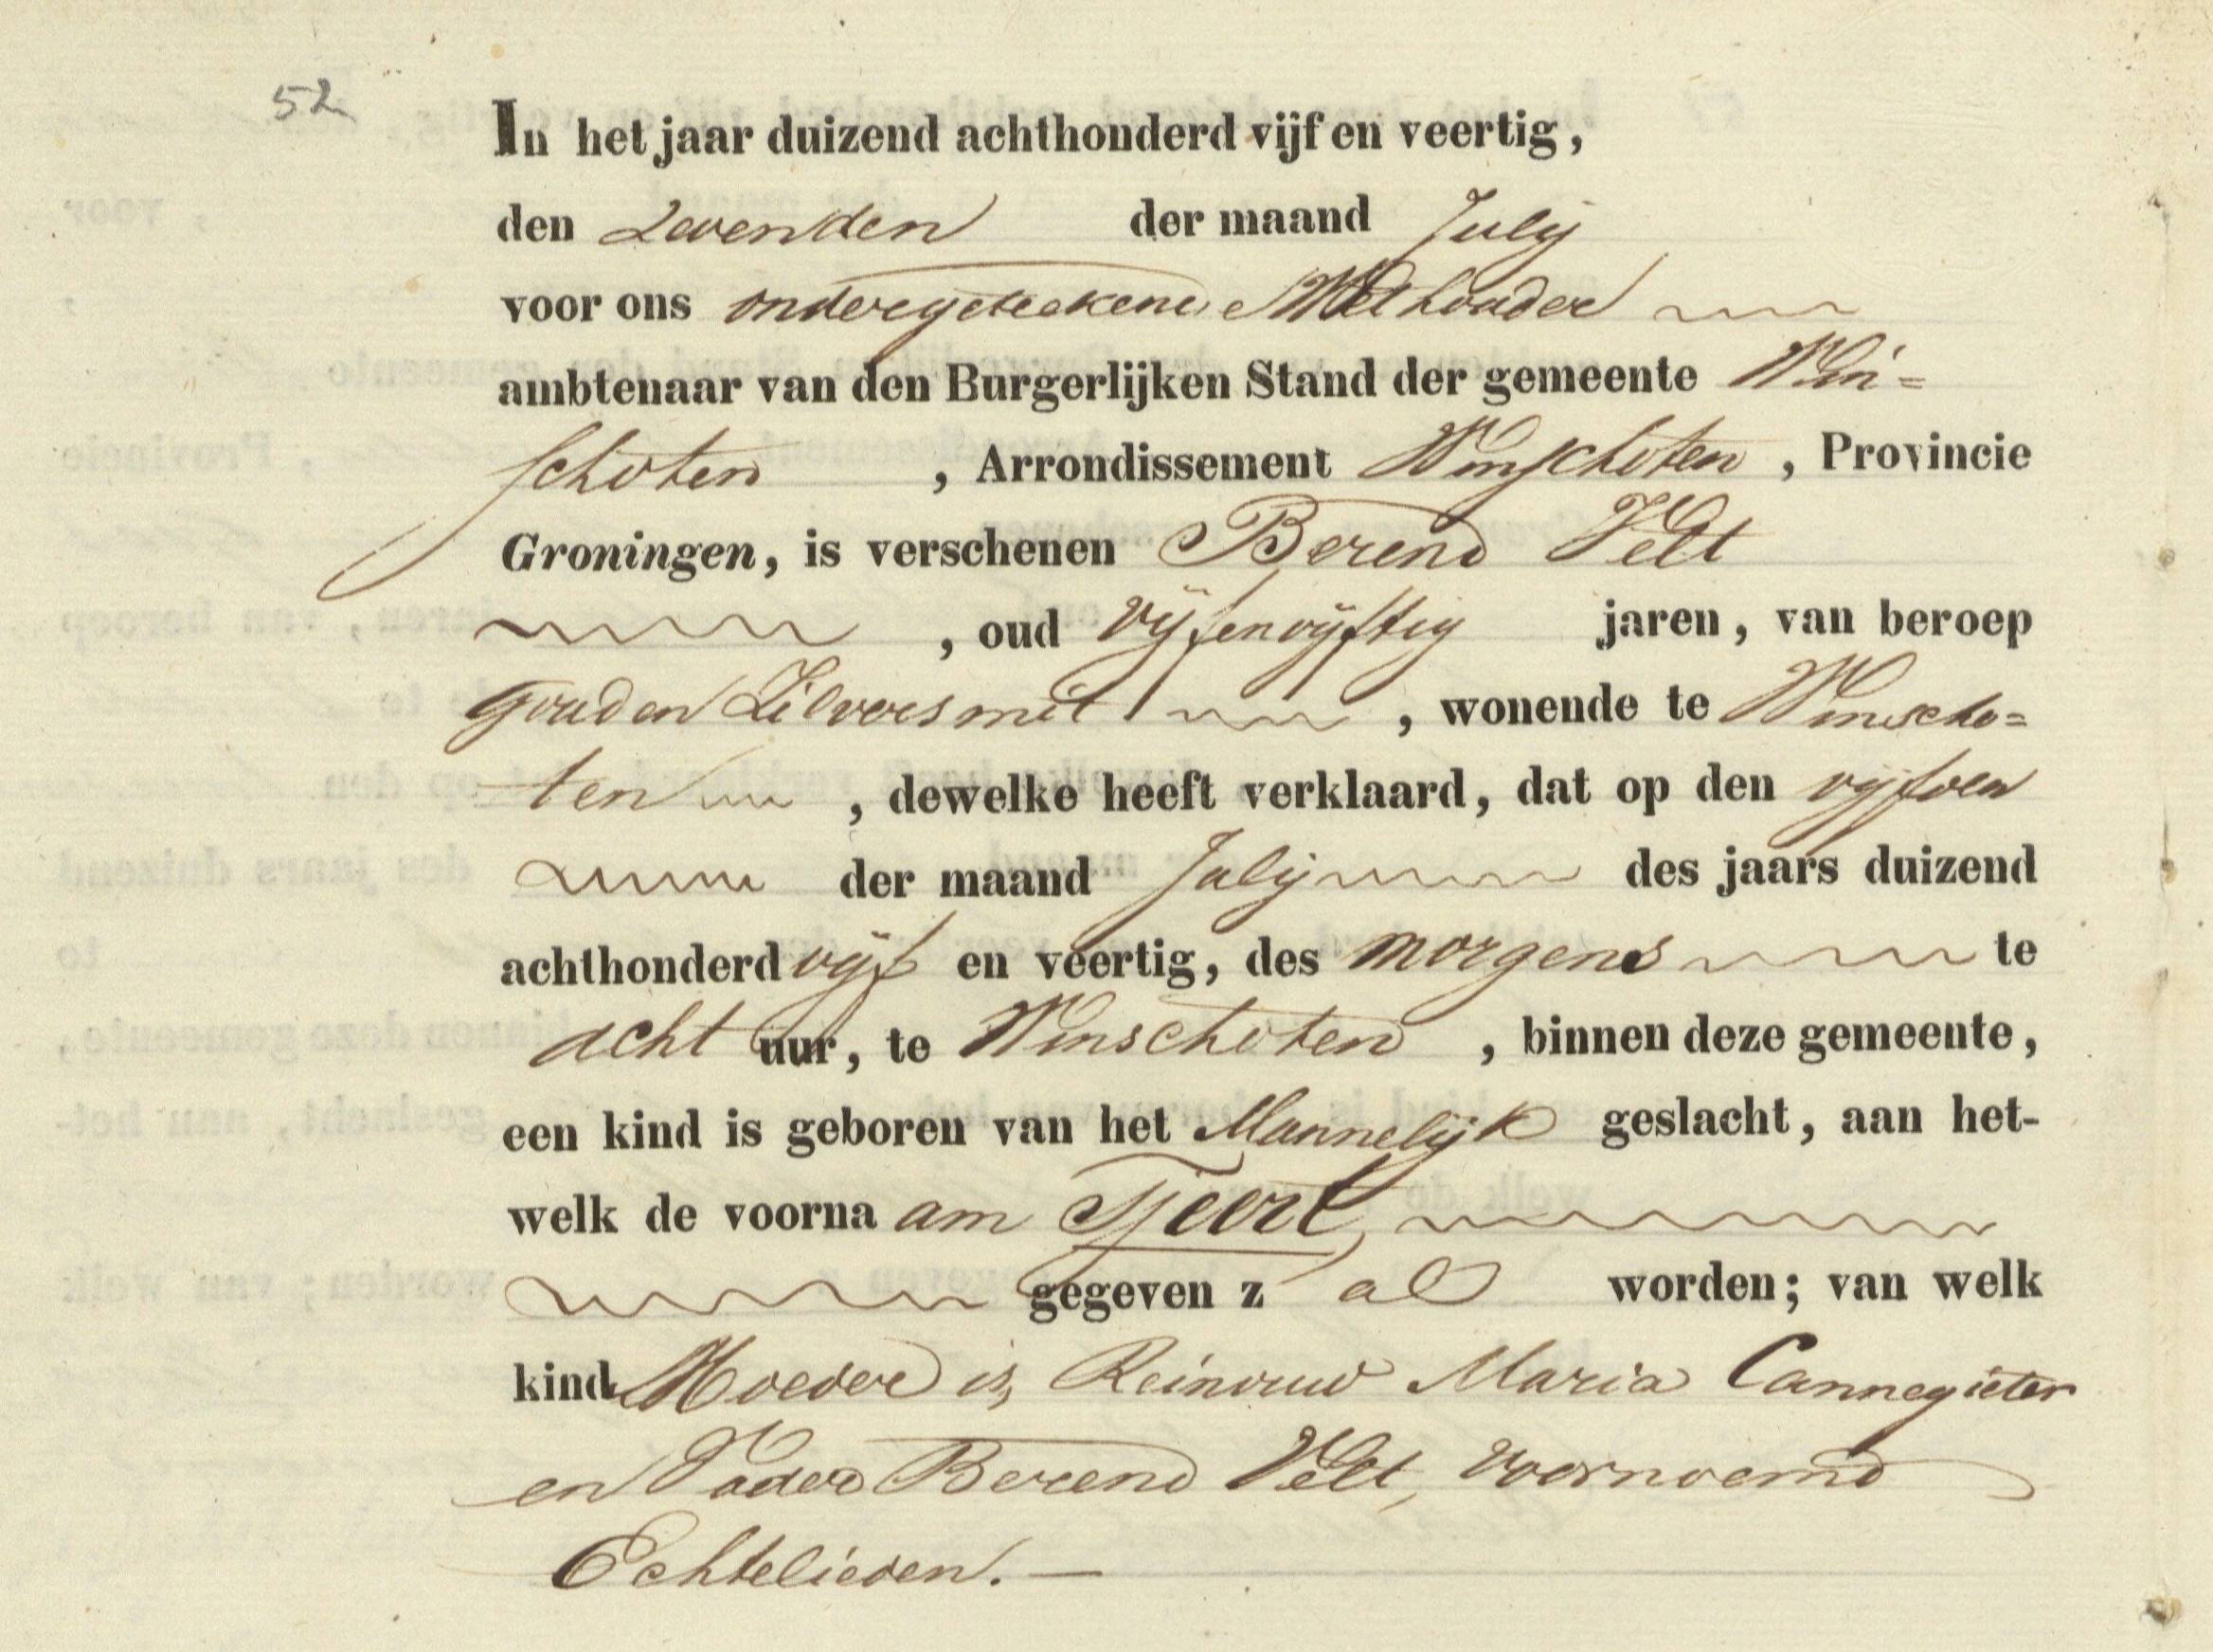 52
In het jaar duizend achthonderd vijf en veertig,
den Zevenden der maand Julij
voor ons ondergeteekene Wethouder
ambtenaar van den Burgerlijken Stand der gemeente Win=
schoten, Arrondissement Winschoten, Provincie
Groningen, is verschenen Berend Velt
, oud vijfenvijftig jaren, van beroep
goud en Zilversmit, wonende te Winscho=
ten, dewelke heeft verklaard, dat op den vijfden
der maand Julij des jaars duizend
achthonderd vijf en veertig, des morgens te
acht uur, te Winschoten, binnen deze gemeente,
een kind is geboren van het Mannelijk geslacht, aan het-
welk de voornaam Tjeert,
gegeven zal worden; van welk
kind Moeder is, Reinouw Maria Cannegieter
en Vader Berend Velt, voornoemd
Echtelieden. —